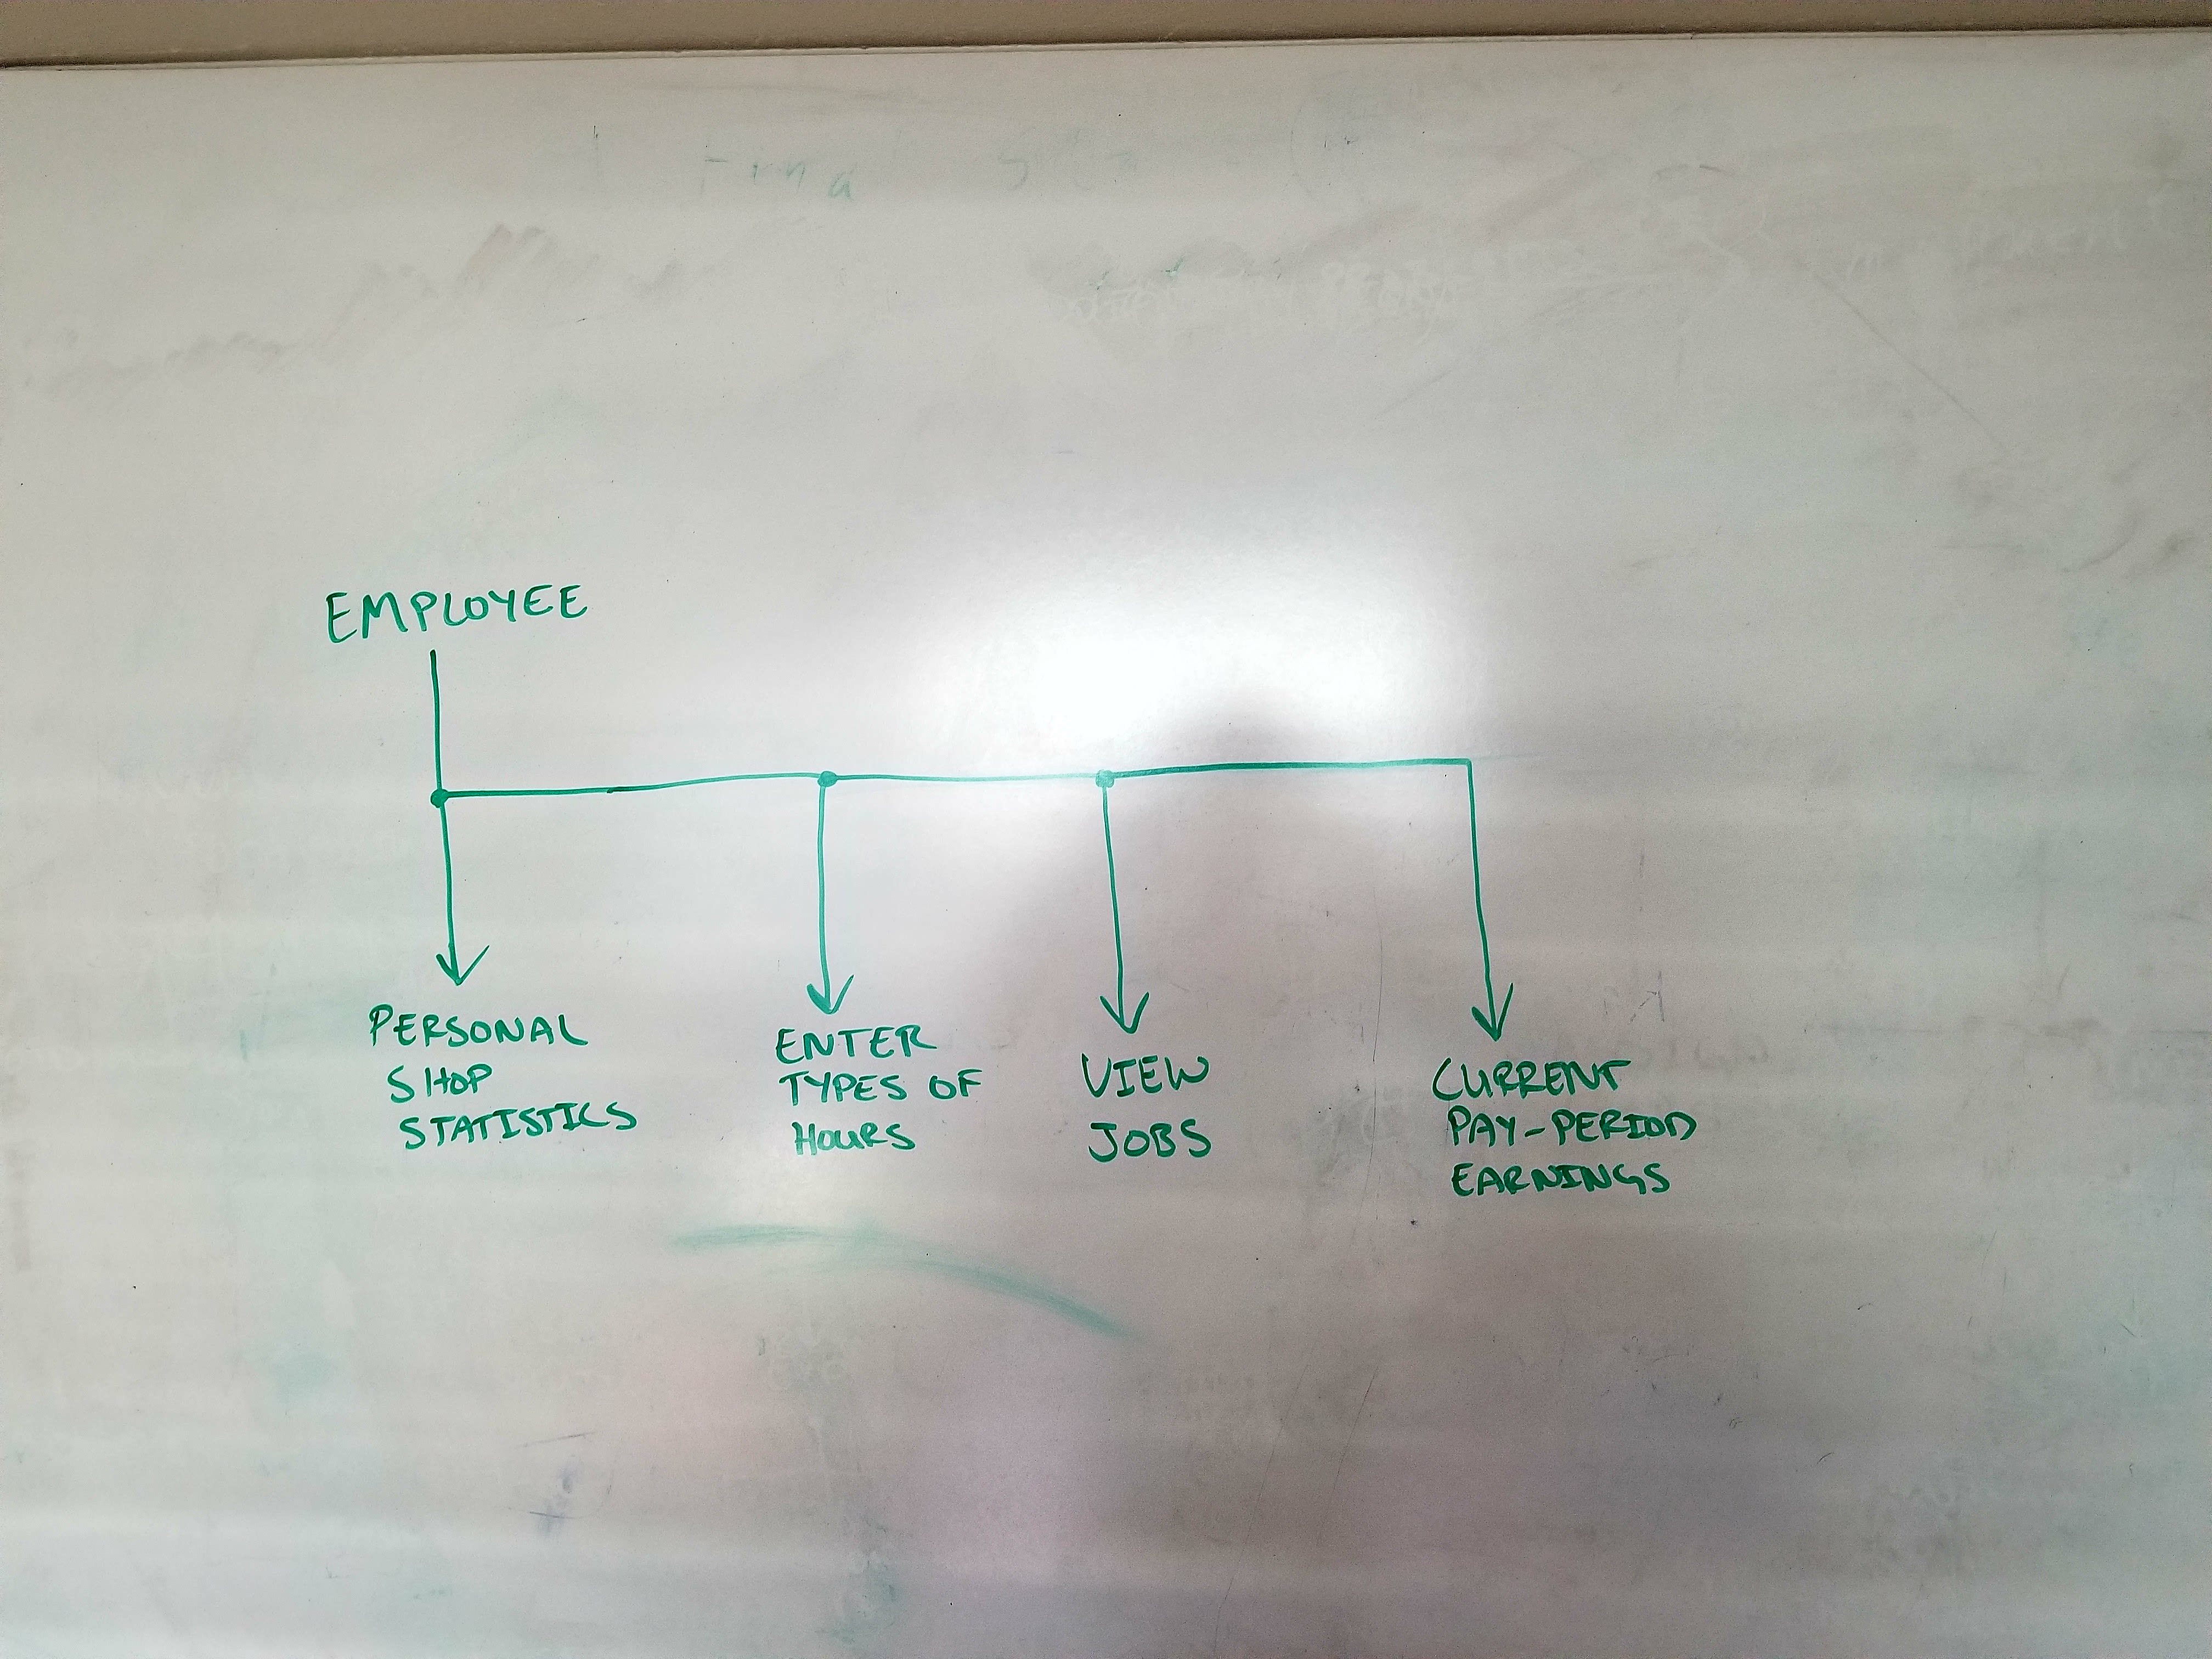 EMPLOYEE
PERSONAL
SHOP
STATISTICS
ENTER
TYPES OF
HOURS
VIEW
JOBS
CURRENT
PAY-PERIOD
EARNINGS